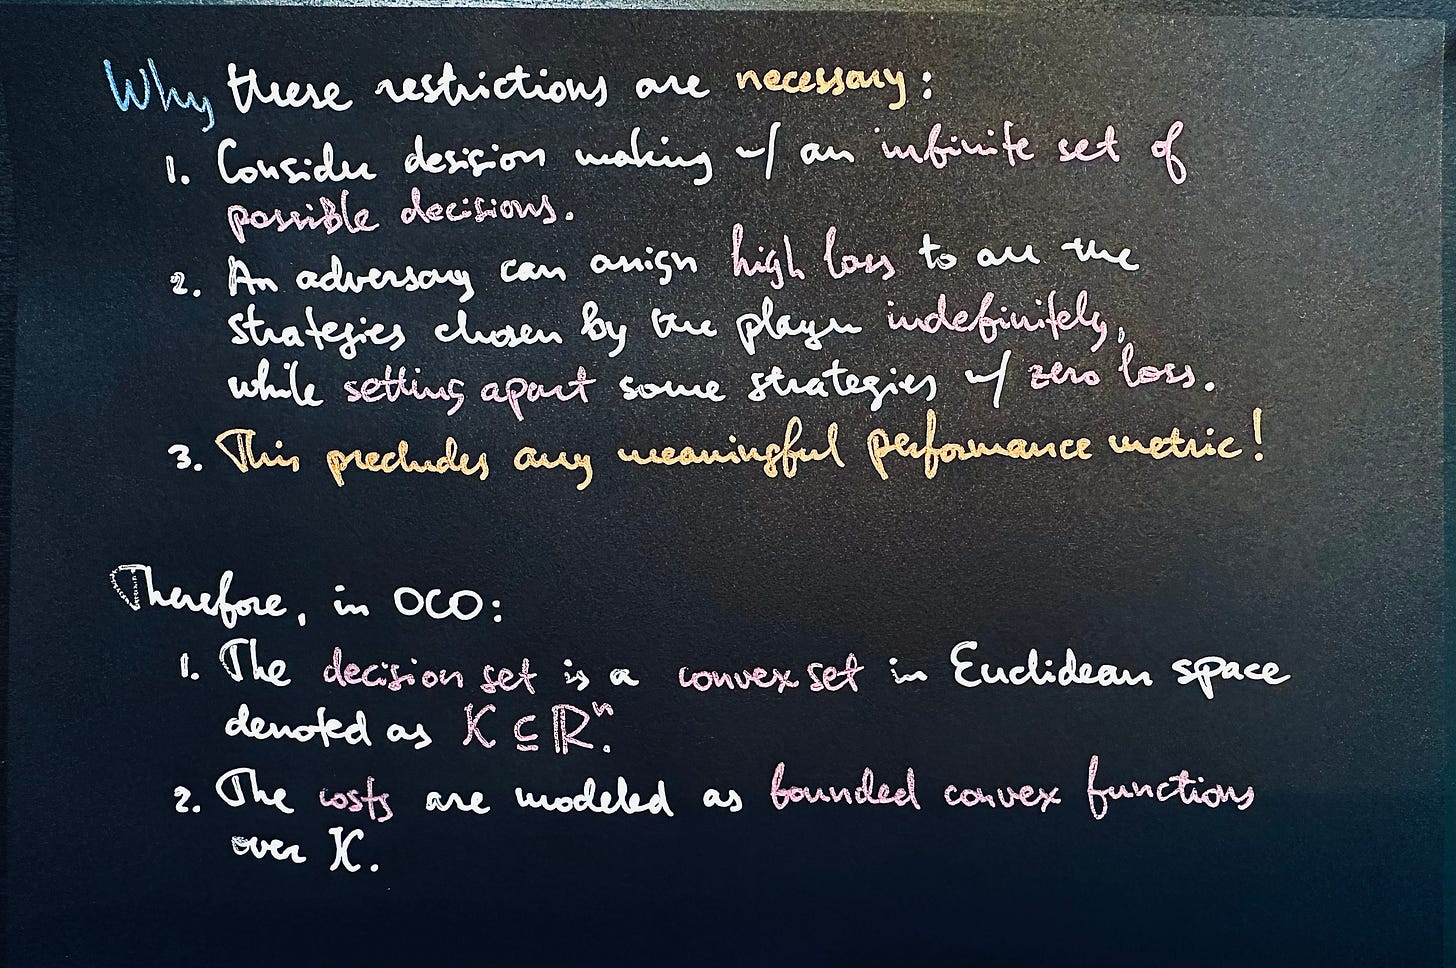 Why these restrictions are necessary:
1. Consider desision making w/ an infinite set of
possible decisions.
2. An adversary can assign high loss to all the
strategies chosen by the player indefinitely,
while setting apart some strategies w/ zero loss.
3. This precludes any meaningful performance metric!
Therefore, in OCO:
1. The decision set is a convex set in Euclidean space
denoted as K ⊆ ℝⁿ.
2. The costs are modeled as bounded convex functions
over K.